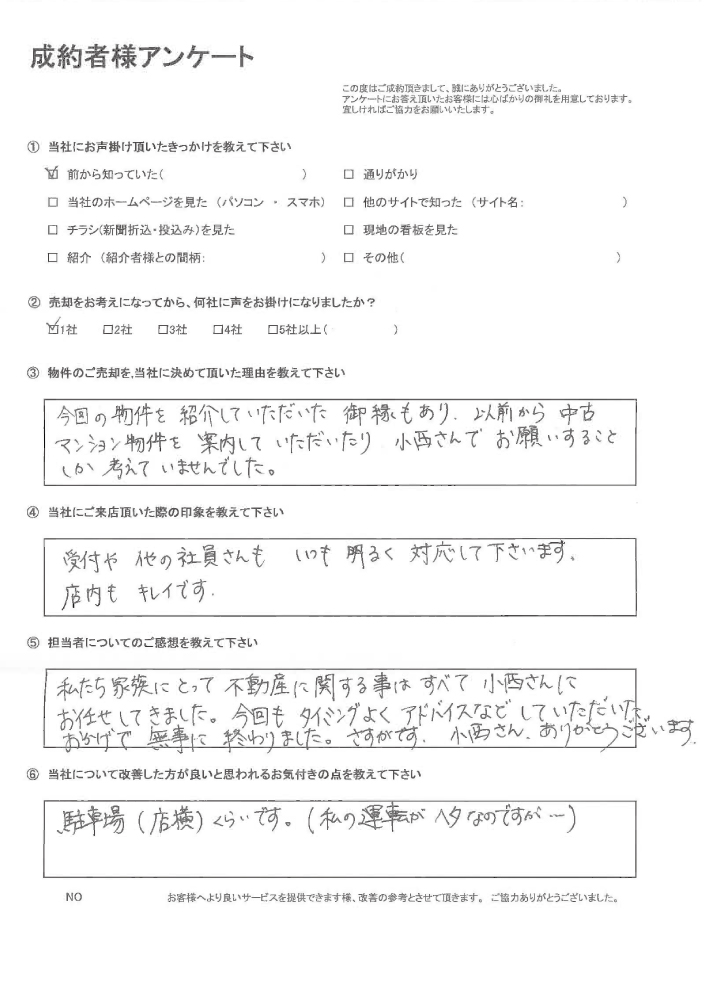 成約者様アンケート
この度はご成約頂きまして、誠にありがとうございました。
アンケートにお答え頂いたお客様には心ばかりの御礼を用意しております。
宜しければご協力をお願いいたします。
① 当社にお声掛け頂いたきっかけを教えて下さい
☑ 前から知っていた( ) □ 通りがかり
□ 当社のホームページを見た (パソコン ・ スマホ) □ 他のサイトで知った (サイト名: )
□ チラシ(新聞折込・投込み)を見た □ 現地の看板を見た
□ 紹介 (紹介者様との間柄: ) □ その他( )
② 売却をお考えになってから、何社に声をお掛けになりましたか？
☑1社 □2社 □3社 □4社 □5社以上( )
③ 物件のご売却を,当社に決めて頂いた理由を教えて下さい
今回の物件を 紹介していただいた 御縁もあり、以前から 中古
マンション物件を 案内して いただいたり 小西さんで お願いすること
しか 考えて いませんでした。
④ 当社にご来店頂いた際の印象を教えて下さい
受付や 他の社員さんも いつも 明るく 対応して下さいます。
店内も キレイです.
⑤ 担当者についてのご感想を教えて下さい
私たち家族にとって 不動産に関する事は すべて 小西さんに
お任せしてきました。今回も タイミングよく アドバイスなど していただいた
おかげで 無事に 終わりました。さすがです. 小西さん. ありがとうございます.
⑥ 当社について改善した方が良いと思われるお気付きの点を教えて下さい
駐車場 (店横) くらいです。(私の運転が ヘタなのですが…)
NO お客様へより良いサービスを提供できます様、改善の参考とさせて頂きます。 ご協力ありがとうございました。